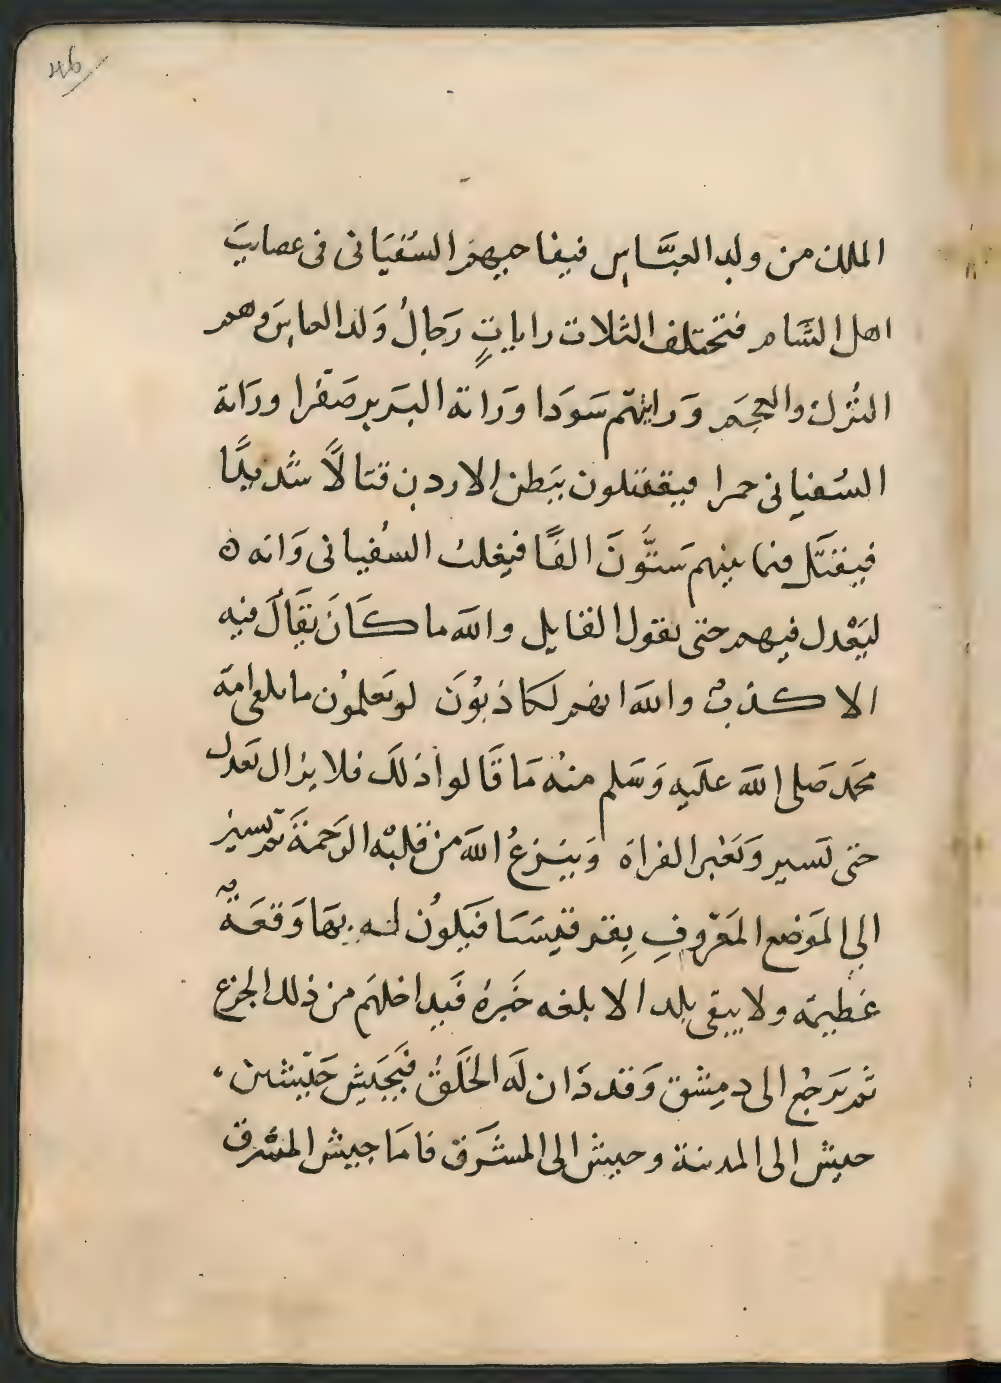 46
الملك من ولد العبَّاس فيفاجيهم السُفيَانى فى عصايبَ
اهل الشَام فتختلف الثلاث راياتٍ رَجالُ وَلد العباسَ وهم
التُرك والعجَم وَرايتهم سَودَا ورَاية البَربر صَفرا ورَاية
السُفيانى حمرا فيقتتلون ببَطن الاردن قتالاً شديدًا
فيقتَل فيما بينهم سَتُّونَ الفًا فيغلب السُفيانى وَانه
ليَعْدل فيهم حتى يقول القايل والله ما كَانَ يقَالَ فيه
الا كذبٌ والله انهم لكاذبُونَ لو يَعلمُون ما يلقى امة
محمد صَلى الله علَيه وَسَلم منه مَا قَالوا ذلكَ فلا يزال يَعدل
حتى يَسير وَيَعْبر الفراة وَيَنزعُ الله من قلبْه الرَحمةَ ثم يسير
الى المَوضع المَعرُوفِ بِقرقيسَيَا فيَكُون له بهَا وَقعَةٌ
عَظيمَه ولا يبقى بلد الا بلغه خَبرهُ فيَداخلهَم من ذلك الجزع
ثم يَرجعُ الى دمِشق وَقد دَان لَه الخَلقُ فيَجيش جَيْشين
جيش الى المدينة وجيش الى المشَرق فامَا جيش المشرق